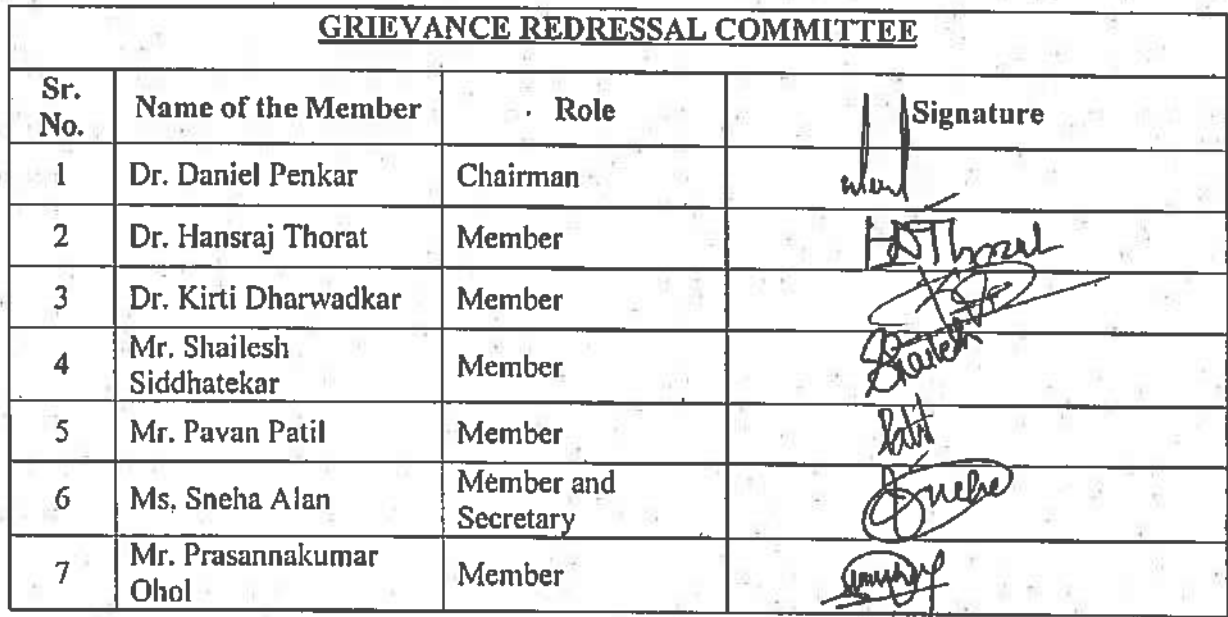 GRIEVANCE REDRESSAL COMMITTEE
Sr. No. Name of the Member Role Signature
1 Dr. Daniel Penkar Chairman
2 Dr. Hansraj Thorat Member HNThorat
3 Dr. Kirti Dharwadkar Member
4 Mr. Shailesh Siddhatekar Member Shailesh
5 Mr. Pavan Patil Member Patil
6 Ms. Sneha Alan Member and Secretary Sneha
7 Mr. Prasannakumar Ohol Member